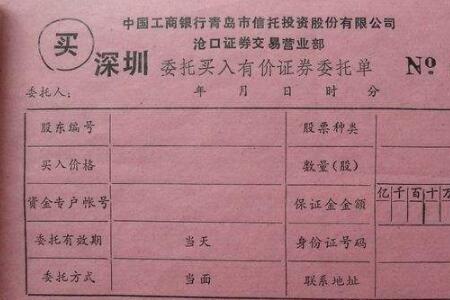 中国工商银行青岛市信托投资股份有限公司
沧口证券交易营业部
买
深圳 委托买入有价证券委托单 №
委托人： 年 月 日 时 分
股东编号 股票种类
买入价格 数量(股)
资金专户帐号 保证金金额 亿千百十万
委托有效期 当天 身份证号码
委托方式 当面 联系地址